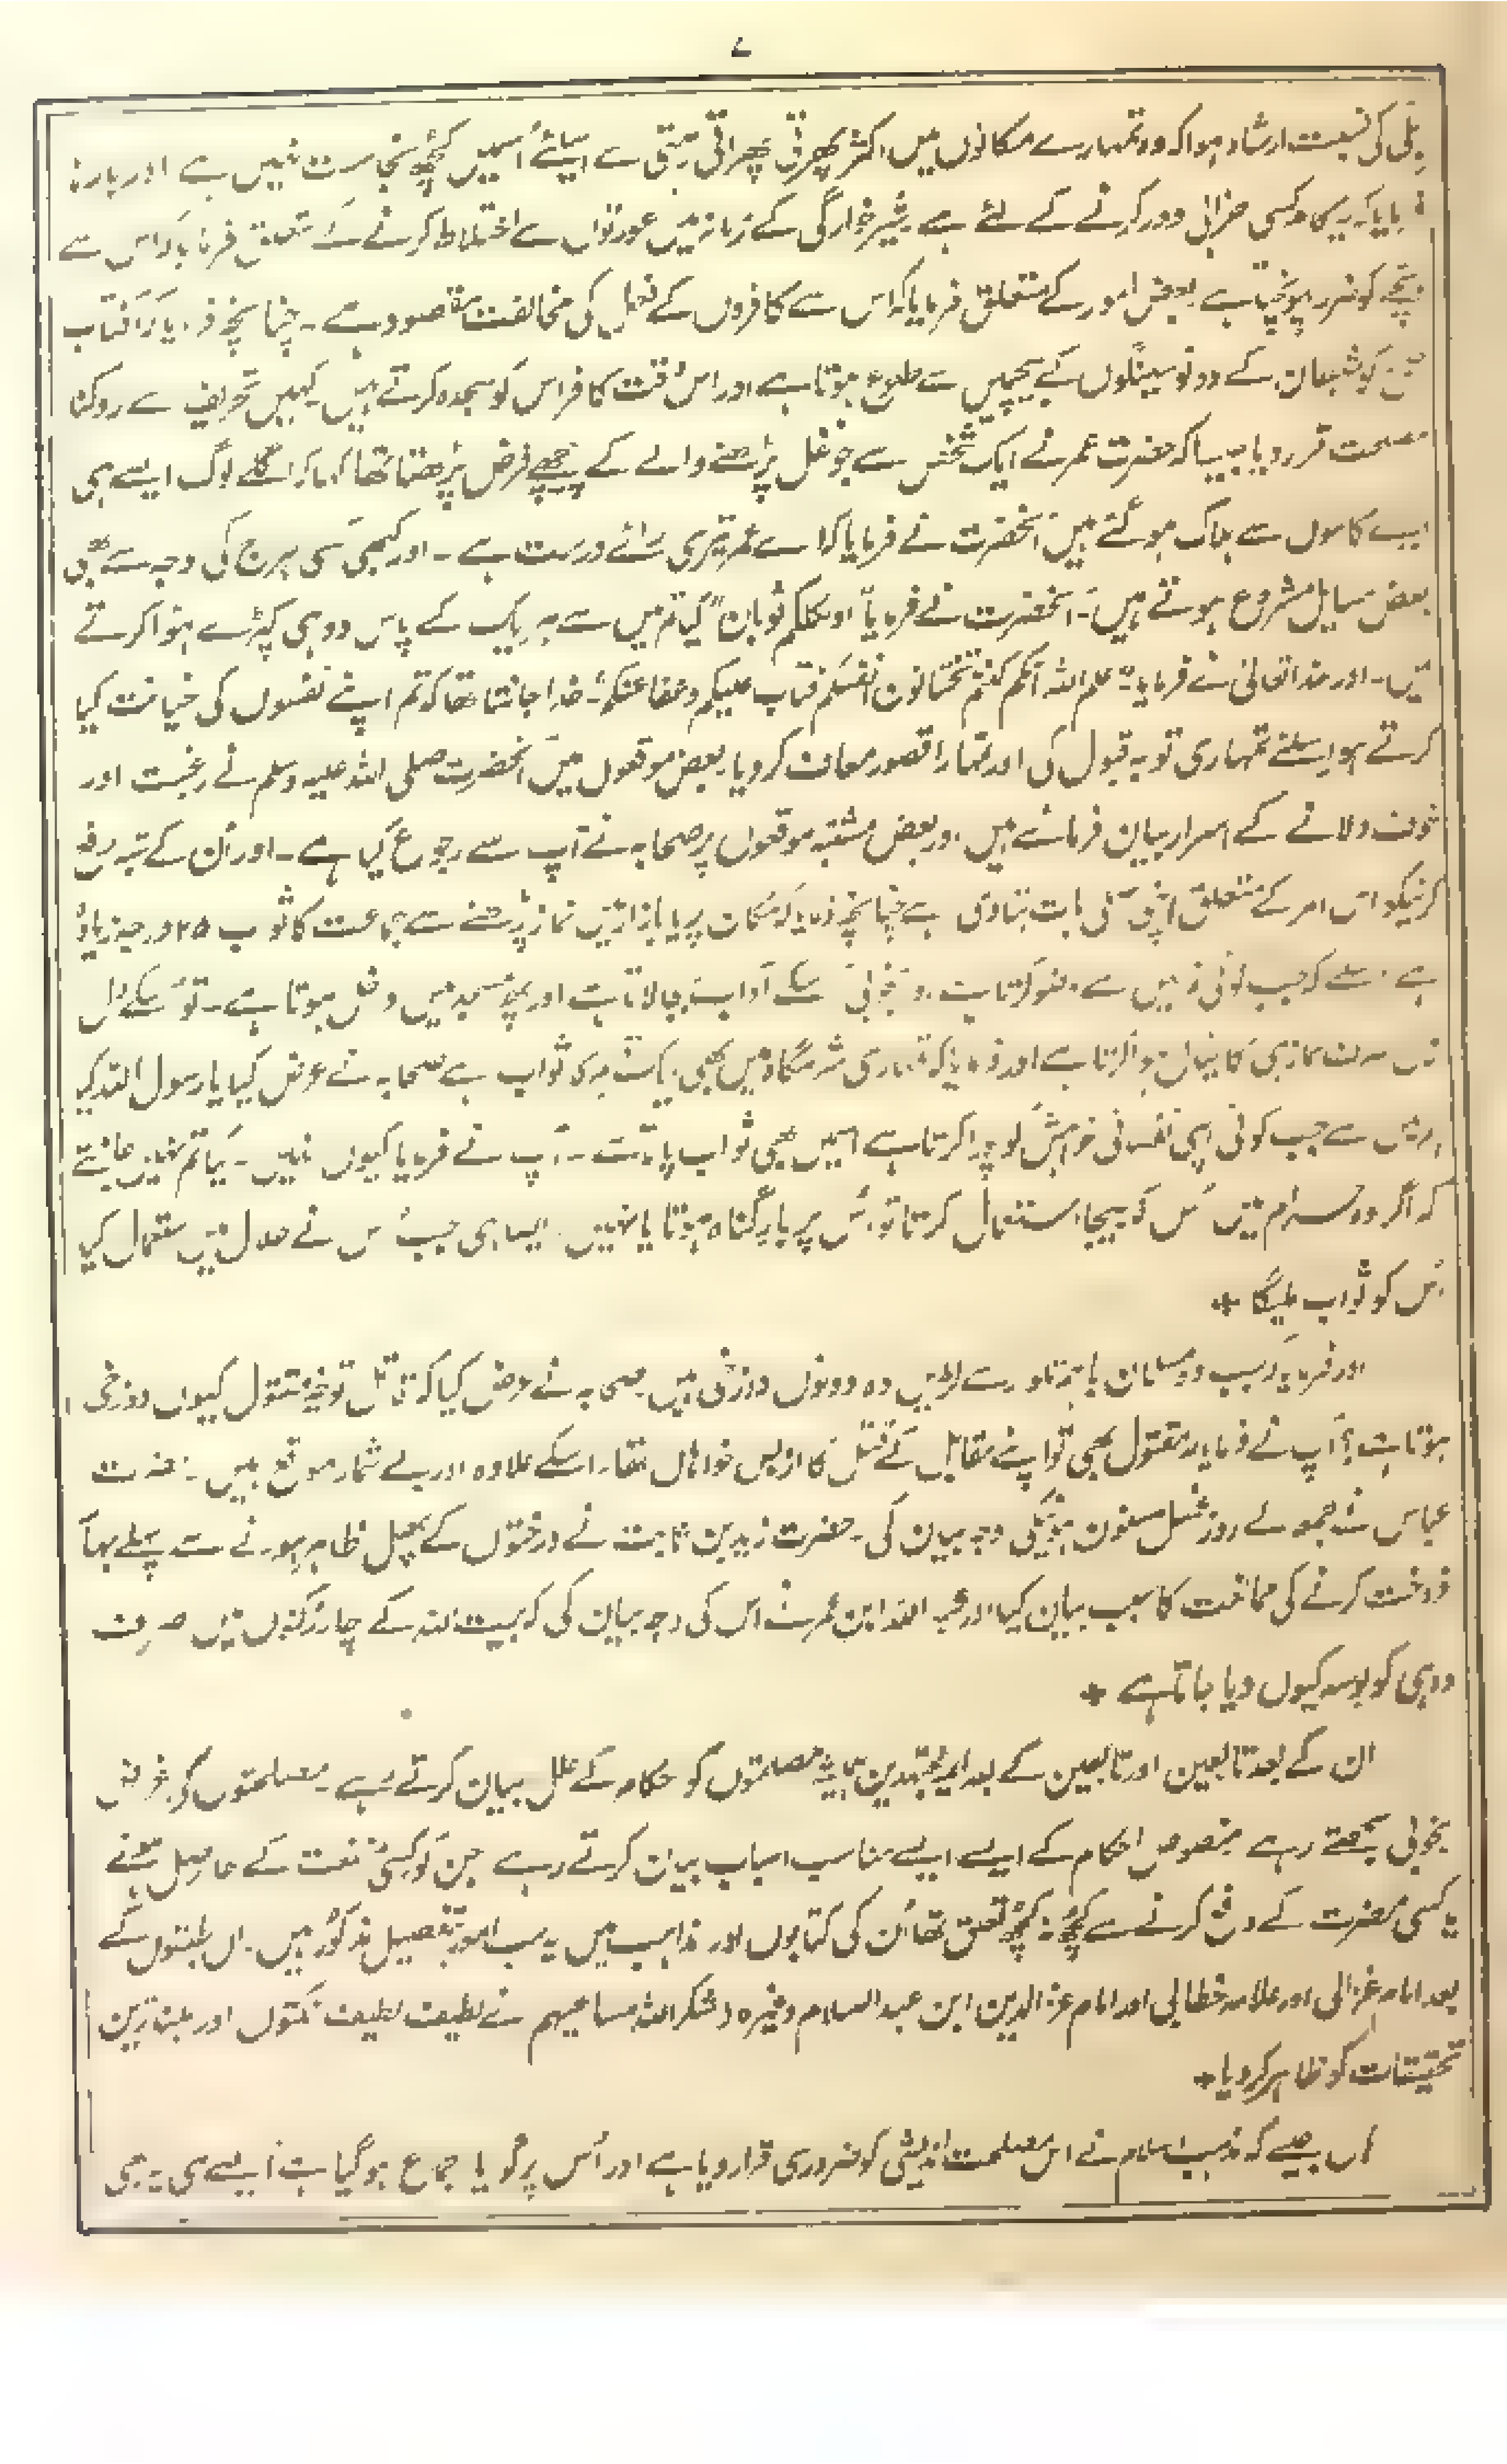 ۷
بلی کی نسبت ارشاد ہوا کہ وہ تمہارے مکانوں میں اکثر پھرتی پھراتی رہتی ہے اسلئے اُسمیں کچھ نجاست نہیں ہے اور بارہا
فرمایا کہ یہ کام کسی خرابی دور کرنے کے لئے ہے شیرخوارگی کے زمانہ میں عورتوں سے اختلاط کرنے کے متعلق فرمایا کہ اس سے
بچے کو ضرر پہونچتا ہے بعض امور کے متعلق فرمایا کہ اس سے کافروں کے فعل کی مخالفت مقصود ہے ۔ چنانچہ فرمایا کہ آفتاب
شیطان کے دونو سینگوں کے بیچمیں سے طلوع ہوتا ہے اور اس وقت کافر اس کو سجدہ کرتے ہیں ۔ کہیں تحریف سے روکنا
مصلحت قرار دیا جیسا کہ حضرت عمر نے ایک شخص سے جو نفل پڑھنے والے کے پیچھے فرض پڑھتا تھا کہا کہ اگلے لوگ ایسے ہی
ایسے کاموں سے ہلاک ہو گئے ہیں آنحضرت نے فرمایا کہ اے عمر تیری رائے درست ہے ۔ اور کبھی کسی ہرج کی وجہ سے بھی
بعض مسایل مشروع ہوتے ہیں ۔ آنحضرت نے فرمایا اولکلکم ثوبان" کیا تم میں سے ہر ایک کے پاس دو ہی کپڑے ہوا کرتے
ہیں ۔ اور خدا تعالیٰ نے فرمایا ۔ علم اللہ انکم کنتم تختانون انفسکم فتاب علیکم وعفا عنکم ۔ خدا جانتا تھا کہ تم اپنے نفسوں کی خیانت کیا
کرتے ہو اسلئے تمہاری توبہ قبول کی اور تمہارا قصور معاف کر دیا ۔ بعض موقعوں میں آنحضرت صلی اللہ علیہ وسلم نے رغبت اور
خوف دلانے کے اسرار بیان فرمائے ہیں ۔ اور بعض مشتبہ موقعوں پر صحابہ نے آپ سے رجوع کیا ہے ۔ اور اُن کے شبہ رفع
کرنیکو اس امر کے متعلق بات بتا دی ہے چنانچہ فرمایا کہ مکان پر یا بازار میں نماز پڑھنے سے جماعت کا ثواب ۲۵ درجہ زیادہ
ہے ۔ اسلئے کہ جب کوئی تم میں سے وضو کرتا ہے اور بخوبی اسکے آداب بجا لاتا ہے اور پھر مسجد میں داخل ہوتا ہے ۔ تو اسکے دل
میں صرف نماز ہی کا خیال ہوا کرتا ہے اور فرمایا کہ تمہاری شرمگاہ میں بھی ایک ثواب ہے صحابہ نے عرض کیا یا رسول اللہ کیا
ہم میں سے جب کوئی اپنی نفسانی خواہش کو پورا کرتا ہے اسمیں بھی ثواب پاتا ہے ۔ آپ نے فرمایا کیوں نہیں ۔ کیا تم نہیں جانتے
کہ اگر وہ حرام میں اس کو بیجا استعمال کرتا تو اُس پر بار گناہ ہوتا یا نہیں ۔ ایسا ہی جب اُس نے حلال میں استعمال کیا
اس کو ثواب ملیگا +
اور فرمایا کہ جب دو مسلمان باہم تلوار سے لڑیں وہ دونوں دوزخی ہیں صحابہ نے عرض کیا کہ قاتل تو خیر مقتول کیوں دوزخی
ہوتا ہے ؟ آپ نے فرمایا کہ مقتول بھی تو اپنے مقابل کے قتل کا از بس خواہاں تھا ۔ اسکے علاوہ اور بے شمار موقع ہیں ۔ حضرت
عباس نے جمعہ کے روز غسل مسنون ہونیکی وجہ بیان کی ۔ حضرت زید بن ثابت نے درختوں کے پھل ظاہر ہونے سے پہلے بہار
فروخت کرنے کی ممانعت کا سبب بیان کیا اور عبد اللہ ابن عمر نے اس کی وجہ بیان کی کہ بیت اللہ کے چار رکنوں میں صرف
دو ہی کو بوسہ کیوں دیا جاتا ہے +
ان کے بعد تابعین اور تابعین کے بعد ایمہ مجتہدین ہمیشہ مصلحتوں کو احکام کے علل بیان کرتے رہے ۔ مصلحتوں کو
بخوبی سمجھتے رہے منصوص احکام کے ایسے ایسے مناسب اسباب بیان کرتے رہے جن کو کسی منفعت کے حاصل ہونے
یا کسی مضرت کے دفع کرنے سے کچھ نہ کچھ تعلق تھا اُن کی کتابوں اور مذاہب میں یہ سب امور بتفصیل مذکور ہیں ۔ ان طبقوں کے
بعد امام غزالی اور علامہ خطابی اور امام عز الدین ابن عبد السلام وغیرہ (شکر اللہ مساعیہم نے لطیف لطیف نکتوں اور بلند ترین
تحقیقات کو ظاہر کر دیا +
ہاں جیسے کہ مذہب اسلام نے اس مصلحت اندیشی کو ضروری قرار دیا ہے اور اُس پر گویا اجماع ہو گیا ہے ایسے ہی یہ بھی